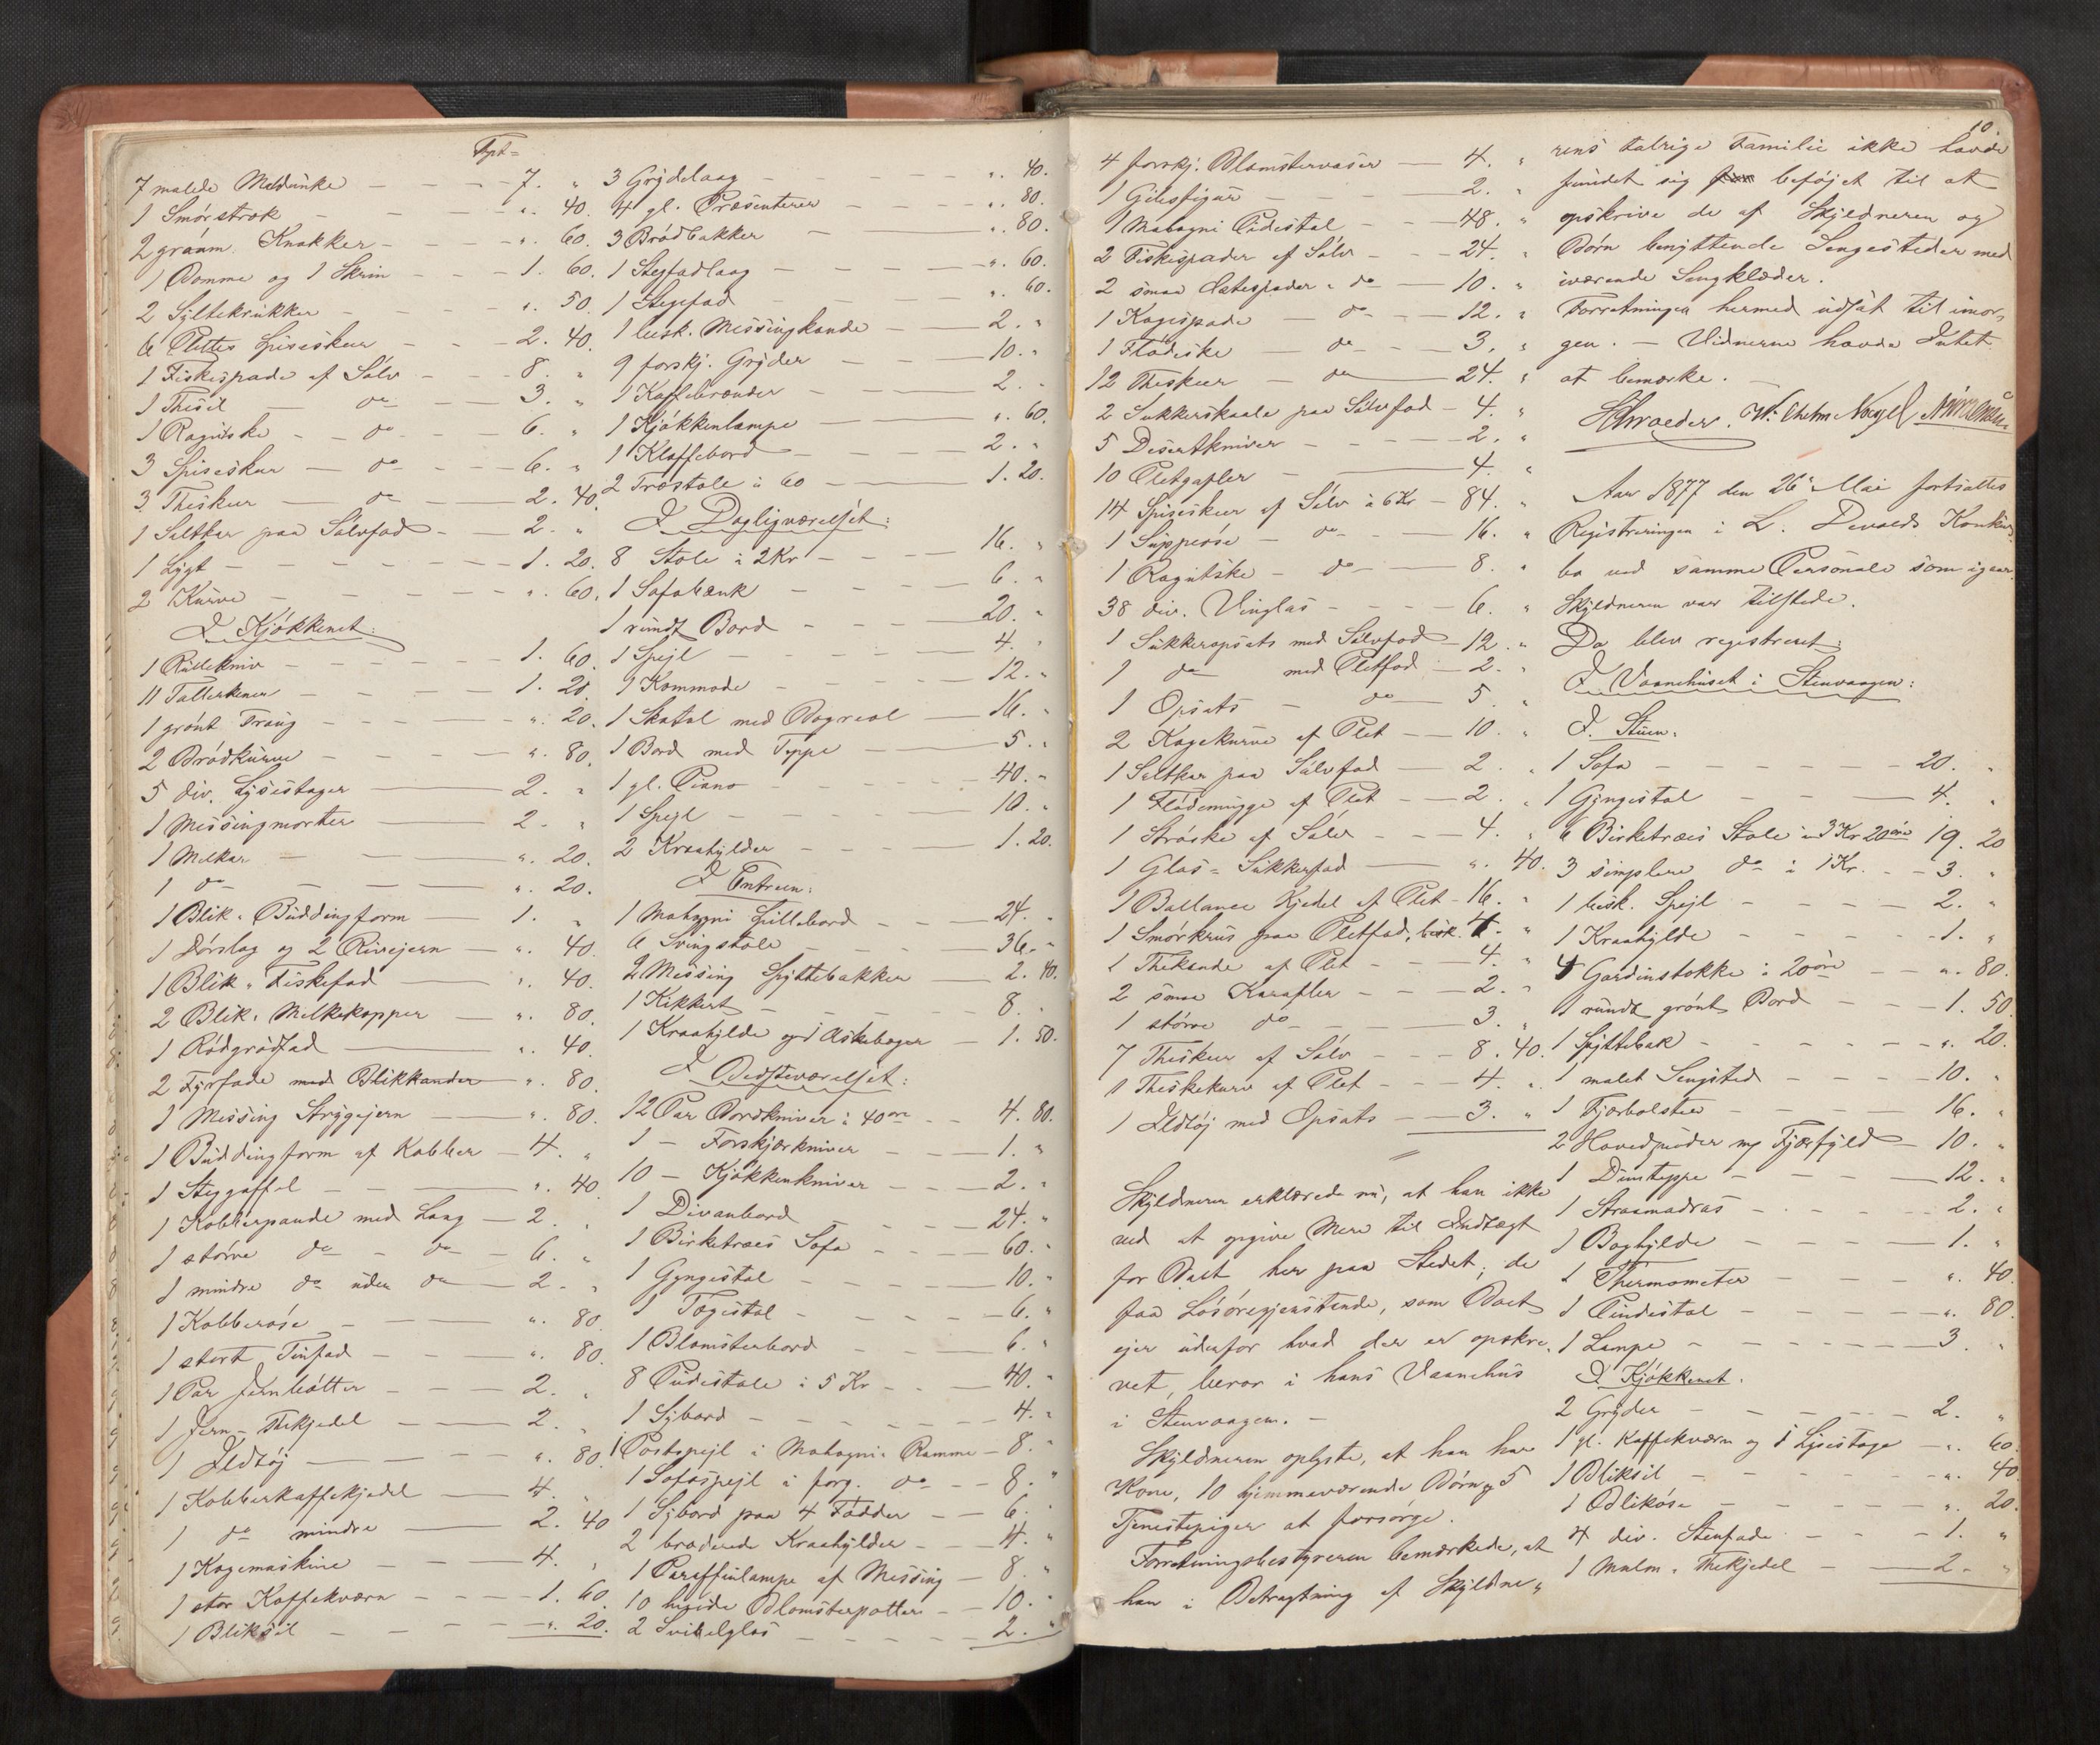 Tpt=
7 malede Melbunke - - - 7. "
1 Smørtrak - - - ". 40.
2 grønm. Krukker - - - ". 60.
1 Bomme og 1 Skrin - - - 1. 60.
2 Syltekrukker - - - ". 50.
6 Plettes Spiseskeer - - - 2. 40.
1 Fiskespade af Sølv - - - 8. "
1 Thesil - do - - - 3. "
1 Raguske - - do - - - 6. "
3 Spiseskeer - do - - - 6. "
3 Theskeer - do - - - 2. 40.
1 Saltkar paa Sølvfad - - 2. "
1 Lygt - - - 1. 20.
2 Kurve - - - ". 60.
I Kjøkkenet:
1 Rullekniv - - - 1. 60.
11 Tallerkener - - - 1. 20.
1 grønt Traug - - - ". 20.
2 Brødkurve - - - ". 80.
5 div. Lysestager - 2. "
1 Messingmorter - 2. "
1 Melkar - - - ". 20.
1 do - - - ". 20.
1 Blik-Buddingform - 1. "
1 Dørslag og 2 Rivejern - ". 40.
1 Blik-Fiskefad - ". 40.
2 Blik-Melkekopper - ". 80.
1 Rødgrødfad - ". 40.
2 Fyrfade med Blikkander - ". 80.
1 Messing Strygejern - ". 80.
1 Buddingform af Kobber - 4. "
1 Steggaffel - - ". 40.
1 Kobberpande med Laag - 2. "
1 større do - do - 6. "
1 mindre do uden do - 2. "
1 Kobberøse - - ". 80.
1 stort Tinfad - - ". 80.
1 Par Jernbøtter - - 2. "
1 Jern-Thekjedel - - 2. "
1 Ildtøj - - ". 80.
1 Kobberkaffekjedel - 4. "
1 do mindre - 2. 40
1 Kagemaskine - - 4. "
1 stor Kaffekværn - - - 1. 60.
1 Bliksil - - - ". 20.
3 Grydelaag - - - ". 40.
4 gl. Præsenterer - - - ". 80.
3 Brødbakker - ". 80.
1 Stegfadlaag - - - ". 60.
1 Stegefad - - ". 60.
1 besk. Messingkande - - 2. "
9 forskj. Gryder - 10. "
1 Kaffebrænder - 2. "
1 Kjøkkenlampe - ". 60.
1 Klaffebord - - - 2. "
2 Træstole à 60 - 1. 20.
I Dagligværelset:
8 Stole à 2 Kr - - - 16. "
1 Sofabænk - - - 6. "
1 rundt Bord - - - 20. "
1 Spejl - - - 4. "
1 Kommode - - - 12. "
1 Skatol med Bogreol - 16. "
1 Bord med Teppe - 5. "
1 gl. Piano - - - 40. "
1 Spejl - - - 10. "
2 Kraahylder - - - 1. 20.
I Entreen:
1 Mahogni Spillebord - - 24. "
6 Svingstole - - - 36. "
2 Messing Spyttebakker - - 2. 40.
1 Kikkert - - - 8. "
1 Kraahylde og 1 Askebæger - 1. 50.
I Bedsteværelset:
12 Par Bordkniver à 40 øre - - 4. 80.
1 - Forskjærkniver - - 1. "
10 - Kjøkkenkniver - - 2. "
1 Divanbord - - - 24. "
1 Birketræes Sofa - - - 60. "
1 Gyngestol - - - 10. "
1 Tøgestol - - - 6. "
1 Blomsterbord - - - 6. "
8 Pudestole à 5 Kr - - 40. "
1 Sybord - - - 4. "
1 Portspejl i Mahogni-Ramme - 8. "
1 Sofaspejl i forg. do - - 8. "
1 Sybord paa 4 Fødder - - 6. "
2 broderede Kraahylder - - 4. "
1 Paraffinlampe af Messing - 8. "
10 hvide Blomsterpotter - - 10. "
2 Svibelglas - - - 2. "
10.
4 forskj. Blomstervaser - 4. "
1 Gibsfigur - - - 2. "
1 Mahogni Pidestal - - 48. "
2 Fiskespader af Sølv - - 24. "
2 smaa Catespader " do - 10. "
1 Kagespade - do - - 12. "
1 Flødeske - do - - 3. "
12 Theskeer - do - 24. "
2 Sukkerskaale paa Sølvfad - 4. "
5 Desertkniver - - - 2. "
10 Pletgafler - 4. "
14 Spiseskeer af Sølv à 6 Kr - 84. "
1 Suppeøse - do - - 16. "
1 Raguske - do - - 8. "
38 div. Vinglas - - - 6. "
1 Sukkeropsats med Sølvfod - 12. "
1 do med Pletfod - 2. "
1 Opsats - do - 5. "
2 Kagekurve af Plet - - 10. "
1 Saltkar paa Sølvfad - 2. "
1 Flødemugge af Plet - - 2. "
1 Strøske af Sølv - - - 4. "
1 Glas-Sukkerfad - ". 40.
1 Ballance Kjedel af Plet - 16. "
1 Smørkrus paa Pletfad, besk. 4. "
1 Thekande af Plet - - 4. "
2 smaa Karafler - - - 2. "
1 større do - 3. "
7 Theskeer af Sølv - - - 8. 40.
1 Theskekurv af Plet - - - 4. "
1 Ildtøj med Opsats - 3. "
Skyldneren erklærede nu, at han ikke
ved at opgive Mere til Indtægt
for Boet her paa Stedet; de
faa Løsøregjenstande, som Boet
ejer udenfor hvad der er opskre-
vet, beror i hans Vaanehus
i Stenvaagen. -
Skyldneren oplyste, at han har
Kone, 10 hjemmeværende Børn og 5
Tjenestepiger at forsørge.
Forretningsbestyreren bemærkede, at
han i Betragtning af Skyldne-
rens talrige Familie ikke havde
fundet sig beføjet til at
opskrive de af Skyldneren og
Børn benyttende Sengesteder med
iværende Sengklæder.
Forretningen hermed udsat til imor-
gen. - Vidnerne havde Intet
at bemærke. -
Schroeder. Wilhelm Nagel
Aar 1877 den 26de Mai fortsattes
Registreringen i L. Devolds Konkurs-
bo ved samme Personale som igaar.
Skyldneren var tilstede.
Da blev registreret:
I Vaanehuset i Stenvaagen:
I Stuen.
1 Sofa - - - 20. "
1 Gyngestol - - 4. "
6 Birketræes Stole à 3 Kr 20 øre 19. 20
3 simplere do à 1 Kr. - - 3. "
1 besk. Spejl - - - 2. "
1 Kraahylde - - - 1. "
4 Gardinstokke à 20 øre - - ". 80.
1 rundt grønt Bord - - - 1. 50
1 Spyttebak - - - ". 20.
1 malet Sengsted - - - 10. "
1 Fjærbolster - - - 16. "
2 Hovedpuder m/ Fjærfyld - 10. "
1 Dunteppe - - - 12. "
1 Straamadras - - - 2. "
1 Boghylde - - - 1. "
1 Thermometer - - - ". 40.
1 Pindestol - - - ". 80.
1 Lampe - - - 3. "
I Kjøkkenet.
2 Gryder - - - 2. "
1 gl. Kaffekværn og 1 Lysestage - ". 60.
1 Bliksil - - - ". 40
1 Blikøse - - - ". 20.
4 div. Stenfade - - - 1. "
1 Malm-Thekjedel - 2. "